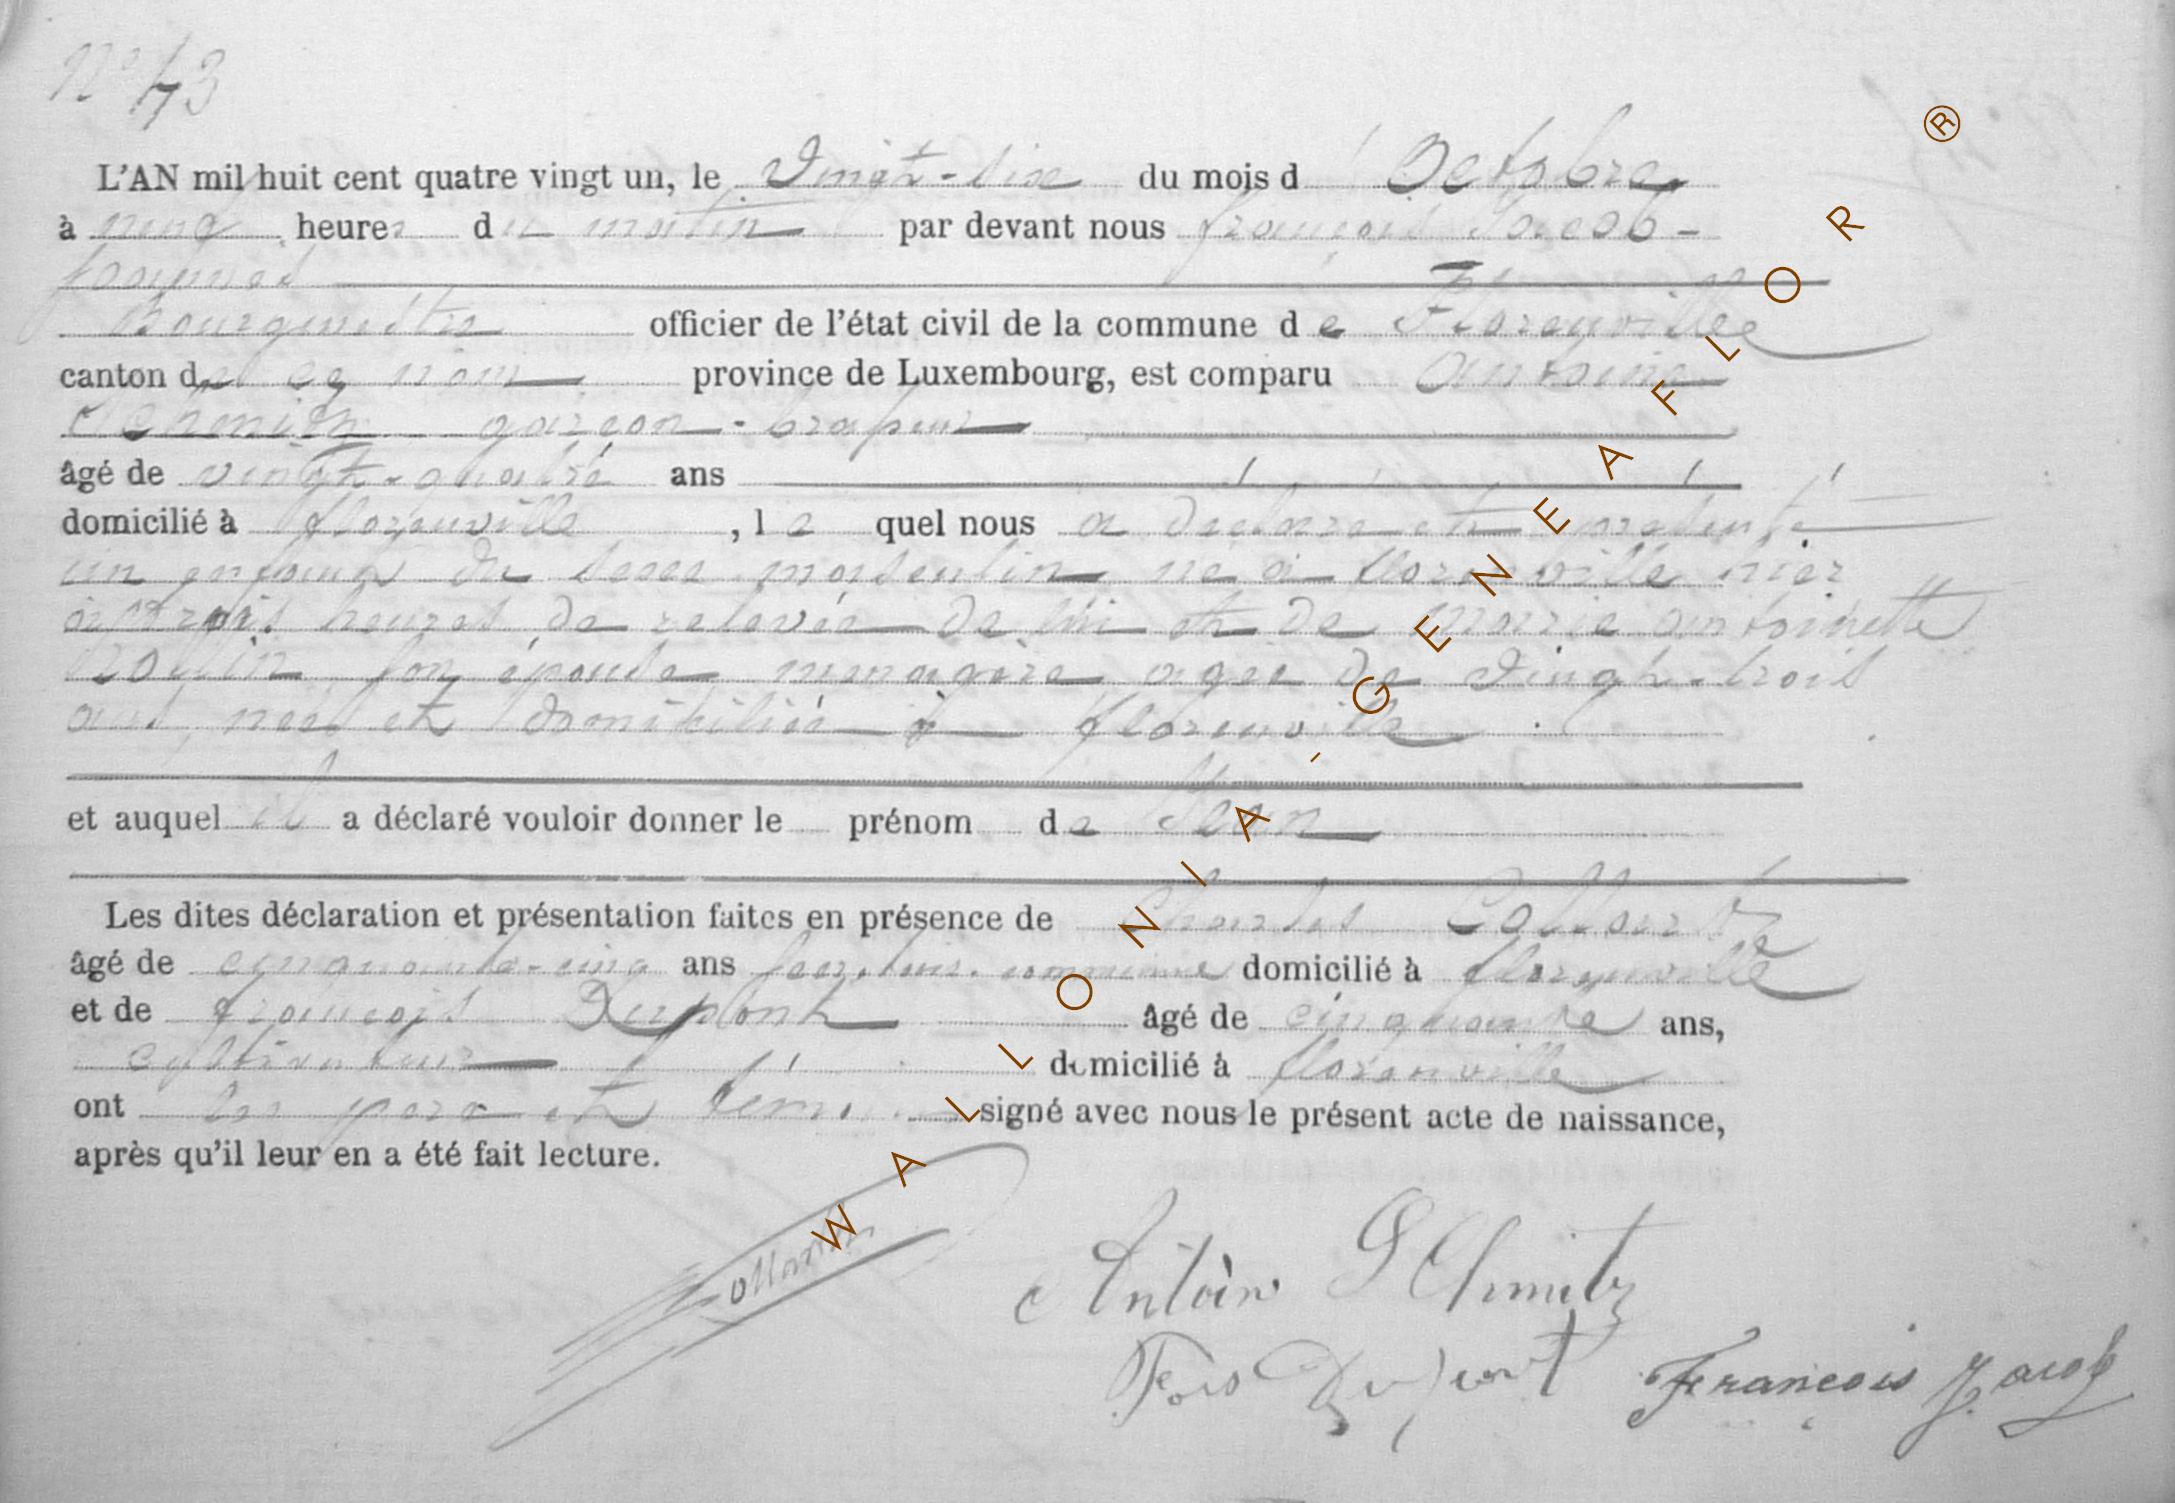 N° 73
L'AN mil huit cent quatre vingt un, le Vingt-six du mois d' Octobre
à neuf heures du matin par devant nous françois Jacob-
Bourgmestre officier de l'état civil de la commune de Florenville
canton de ce nom province de Luxembourg, est comparu Antoine
Schmitz garçon-brasseur
âgé de vingt-quatre ans
domicilié à florenville, lequel nous a déclaré et présenté
un enfant du sexe masculin né à florenville hier
à trois heures de relevée de lui et de Marie antoinette
son épouse ménagère agée de Vingt-trois
ans, née et domiciliée à florenville.
et auquel il a déclaré vouloir donner le prénom de Jean
Les dites déclaration et présentation faites en présence de Charles Collard
âgé de cinquante-cinq ans domicilié à florenville
et de françois Dupont âgé de cinquante ans,
cultivateur domicilié à florenville
ont les père et témoins signé avec nous le présent acte de naissance,
après qu'il leur en a été fait lecture.
Collard
Antoine Schmitz
Fois Dupont François Jacob
WALLONIA-GENEAFLOR ®